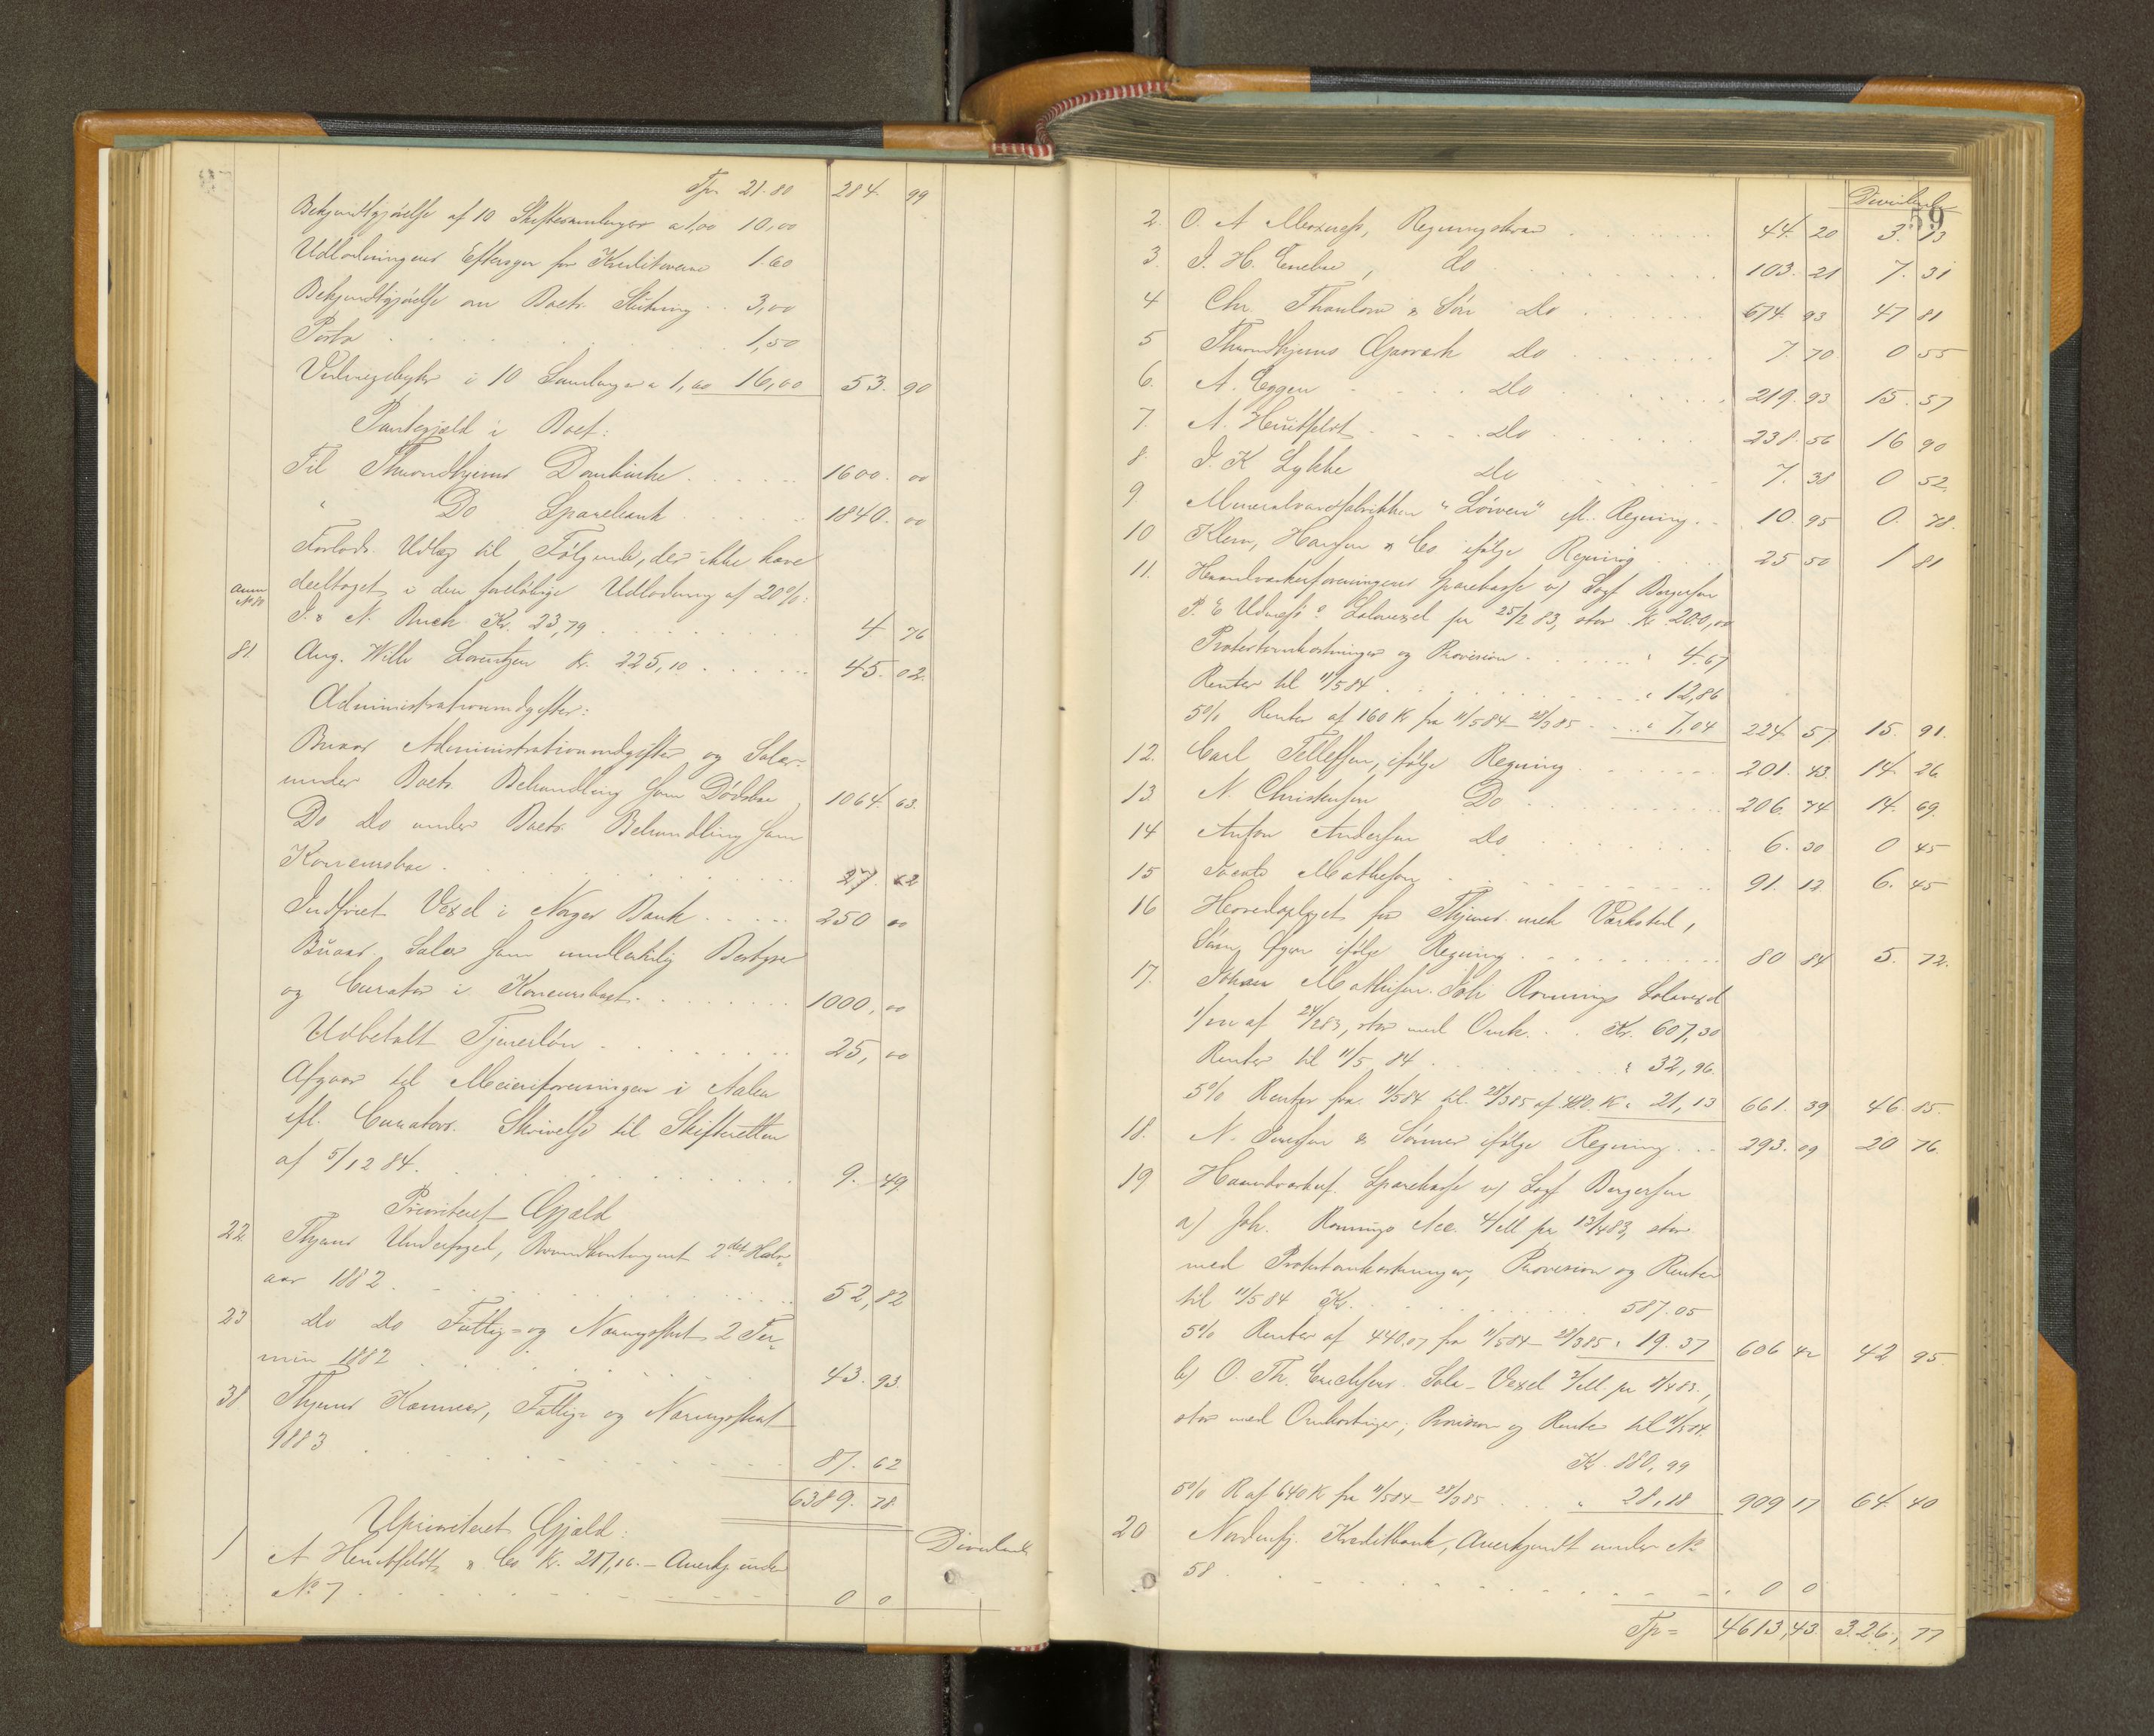 Tpr. 21.80 284. 99
Bekjendtgjørelse af 10 Skiftesamlinger a 1,00 10,00
Udlodningens Eftersyn for Kreditorerne 1.60
Bekjendtgjørelse om Boets Slutning . . 3,00
Porto . . . 1,50
Vidnegebyhr i 10 Samlinger a 1,60 16,00 53. 90
Pantegjæld i Boet:
Til Throndhjems Domkirke . . . 1600. 00
" Do Sparebank . . . 1840. 00
Forlods Udlæg til Følgende, der ikke have
deeltaget i den foreløbige Udlodning af 20%:
Anm No 80 I. & N. Buck Kr. 23,79 . . . 4 76
81. Aug. Wille Lorentzen Kr. 225,10 . . . 45. 02.
Administrationsudgifter:
Buaas Administrationsudgifter og Salær
under Boets Behandling som Dødsbo 1064. 63.
Do do under Boets Behandling som
Konkursbo . . . 27. 62
Indfriet Vexel i Norges Bank . . . 250 00
Buaas Salær som midlertidig Bestyrer
og Curator i Konkursboet . . . 1000, 00
Udbetalt Tjenerløn . . . 25, 00
Afgaar til Meieriforeningen i Aalen
ifl. Curators Skrivelse til Skifteretten
af 5/12 84. . . . 9. 49
Prioriteret Gjæld
22. Thjems Underfoged, Brandkontingent 2det Halv-
aar 1882 . . . 52, 82
23 do do Fattig- og Næringsskat 2 Ter-
min 1882 . . . 43. 93.
38 Thjems Kæmner, Fattig- og Næringsskat
1883 . . . 87. 62
6389. 78
Uprioriteret Gjæld:
Dividende
1 A Huitfeldt & Co Kr. 217,10. – Anerkj. under
No 7 . . . 0 0
Dividende
59
2. O. A. Moxness, Regningskrav . . . 44. 20 3. 13
3. I. H. Eneboe, do . . . 103. 21 7. 31
4 Chr. Thaulow & Søn do . . . 674. 93 47 81
5 Throndhjems Gasværk do . . . 7. 70 0 55
6. A. Eggen do . . . 219. 93 15. 57
7. A. Huitfeldt do . . . 238. 56 16 90
8. I. K. Lykke do . . . 7. 38 0 52
9 Mineralvandfabrikken "Løven" ifl. Regning . . 10. 95 0. 78.
10 Klem, Hansen & Co ifølge Regning . . . 25 50 1 81
11. Haandværkerforeningens Sparekasse v/ Sagf. Bergersen
P. E. Udness's Solavexel pr 25/2 83, stor Kr. 200,00
Protestomkostninger og Provision . . . " 4.67
Renter til 11/5 84 . . . " 12,86
5% Renter af 160 Kr fra 11/5 84 – 28/3 85 . . " 7,04 224 57. 15. 91.
12. Carl Tellefsen, ifølge Regning . . . 201. 43. 14. 26
13. N. Christensen Do . . . 206. 74 14. 69.
14 Anton Andersen do . . . 6. 30 0 45
15 Mathesen . . . 91. 12 6. 45
16 Hovedoplaget for Thjems mek Værksted,
ifølge Regning . . . 80 84 5. 72.
17. Johan Mathisen. Joh. Rønnings Solavexel
af 24/2 83, stor med Omk. . . Kr. 607,30
Renter til 11/5 84 . . . " 32,96.
5% Renter fra 11/5 84 til 28/3 85 af 480 Kr " 21,13 661. 39 46. 85.
18. N. Jenssen & Sønner ifølge Regning . . 293. 09 20 76.
19 Haandværkerf. Sparekasse v/ Sagf Bergersen
a) Joh. Rønnings Acc. pr 13/4 83, stor
med Protestomkostninger, Provision og Renter
til 11/5 84 Kr. . . . 587.05
5% Renter af 440.07 fra 11/5 84 – 28/3 85 " 19.37 606 42 42 95
b) O. Th. Sola-Vexel
stor med Omkostninger, Provision og Renter til 11/5 84.
Kr. 880,99
5% R af 640 Kr fra 11/5 84 – 28/3 85 . . . " 28,18 909 17 64. 40
20 Nordenfj. Kreditbank, Anerkjendt under No
58 . . . 0 0
Tpr = 4613,43. 326, 77